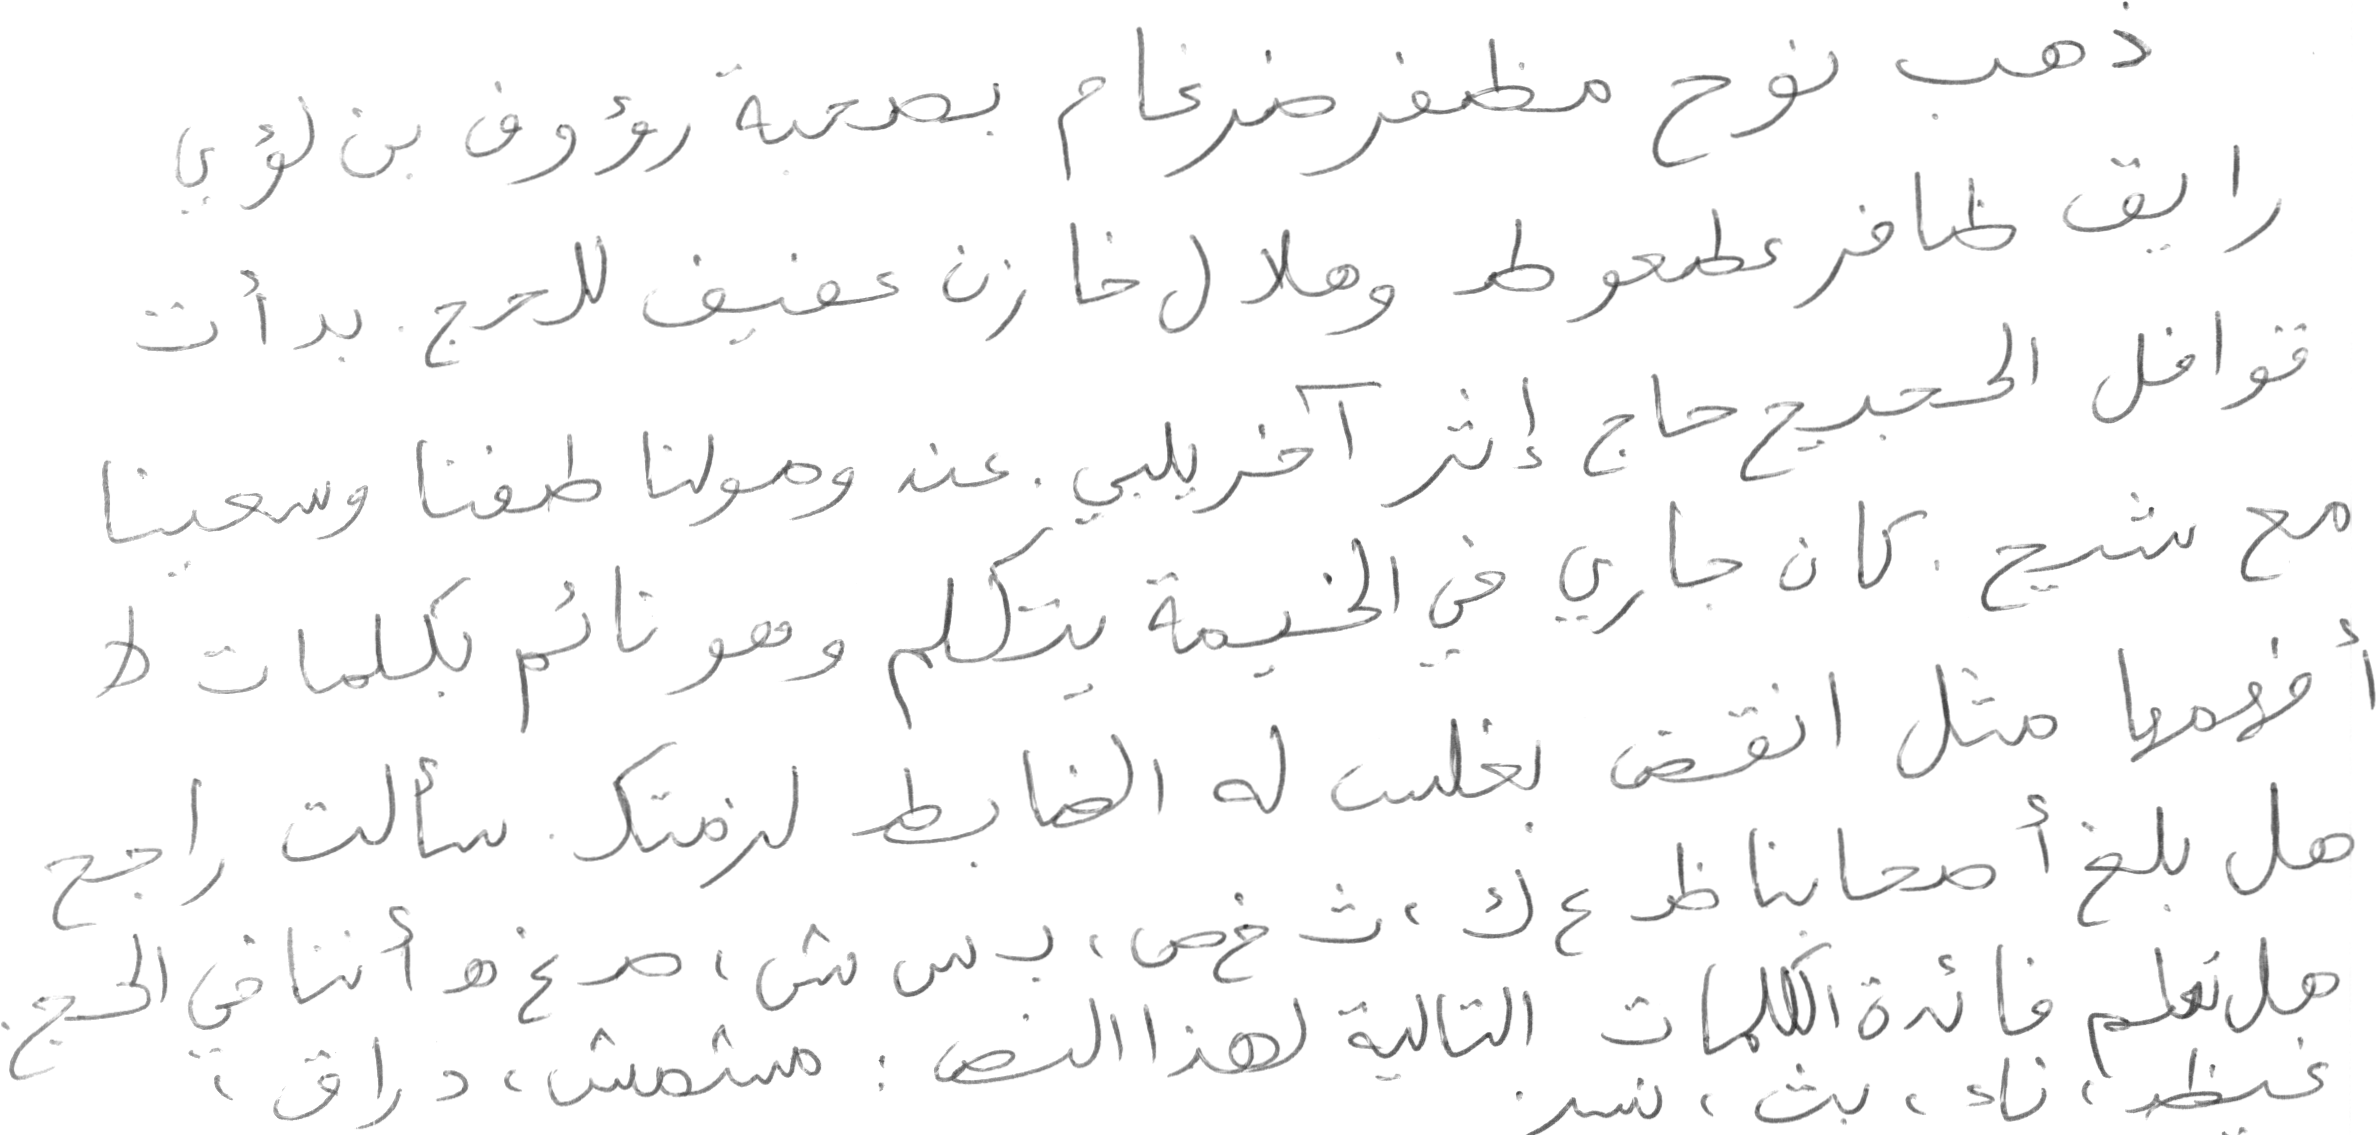 ذهب نوح مظفر ضرغام بصحبة رؤوف بن لؤي
رايق ظافر عطعوط وهلال خازن عفيف للحج. بدأت
قوافل الحجيج حاج إثر آخر يلبي. عند وصولنا طفنا وسعينا
مع شيخ. كان جاري في الخيمة يتكلم وهو نائم بكلمات لا
أفهمها مثل انقض بغلس له الضابط لزمتك. سألت راجح
هل بلغ أصحابنا ظ ع ك، ث خ ص، ب س ش، ص غ ه أننا في الحج.
هل تعلم فائدة الكلمات التالية لهذا النص: مشمش، دراق،
غيظ، ناء، بث، نسر.